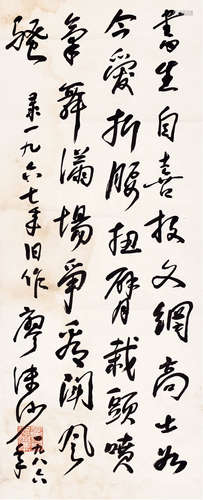 書生自喜投文網高士如
今愛折腰扭臂栽頭噴
氣舞滿場爭看鬧風
騷 录一九六七年旧作 廖沫沙
一九八六年